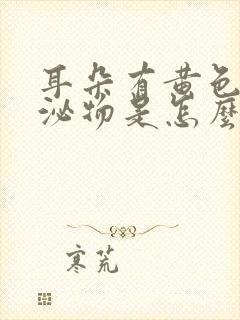 耳朵有黄色
泌物是怎麼
寒荒